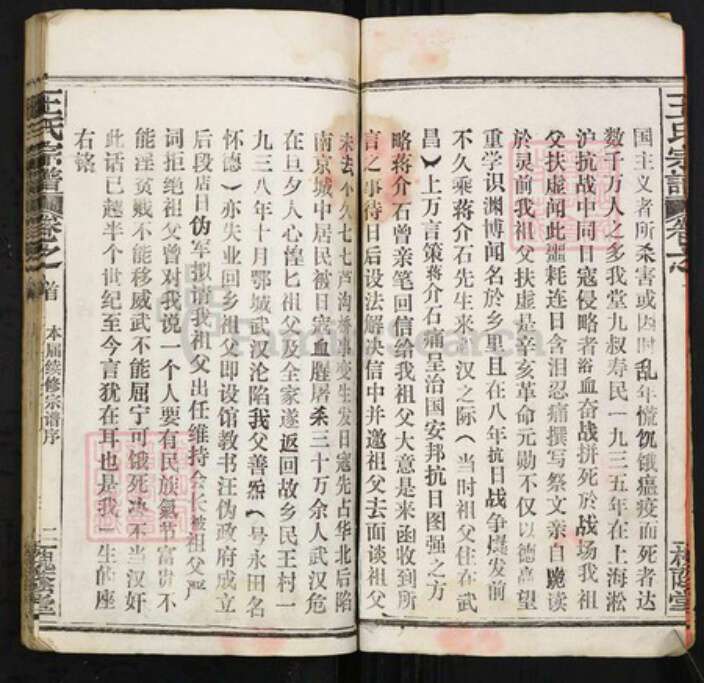 王氏宗譜
卷之一
槐蔭堂
国主义者所杀害或因时乱年慌饥饿瘟疫而死者达
数千万人之多我堂九叔寿民一九三五年在上海淞
沪抗战中同日寇侵略者浴血奋战拼死於战场我祖
父扶虚闻此噩耗连日含泪忍痛撰写祭文亲自跪读
於灵前我祖父扶虚是辛亥革命元勋不仅以德高望
重学识渊博闻名於乡里且在八年抗日战争爆发前
不久乘蒋介石先生来汉之际（当时祖父住在武
昌）上万言策蒋介石痛呈治国安邦抗日图强之方
略蒋介石曾亲笔回信给我祖父大意是来函收到所
言之事待日后设法解决信中并邀祖父去面谈祖父
未去不久七七芦沟桥事变生发日寇先占华北后陷
南京城中居民被日寇血腥屠杀三十万余人武汉危
在旦夕人心惶匕祖父及全家遂返回故乡民王村一
九三八年十月鄂城武汉沦陷我父善熙（号永田名
怀德）亦失业回乡祖父即设馆教书汪伪政府成立
后段店日伪军拟请我祖父出任维持会长被祖父严
词拒绝祖父曾对我说一个人要有民族氣节富贵不
能淫贫贱不能移威武不能屈宁可饿死决不当汉奸
此话已越半个世纪至今言犹在耳也是我一生的座
右铭
王氏宗譜
卷之一
首
本届续修宗谱序
二
槐蔭堂